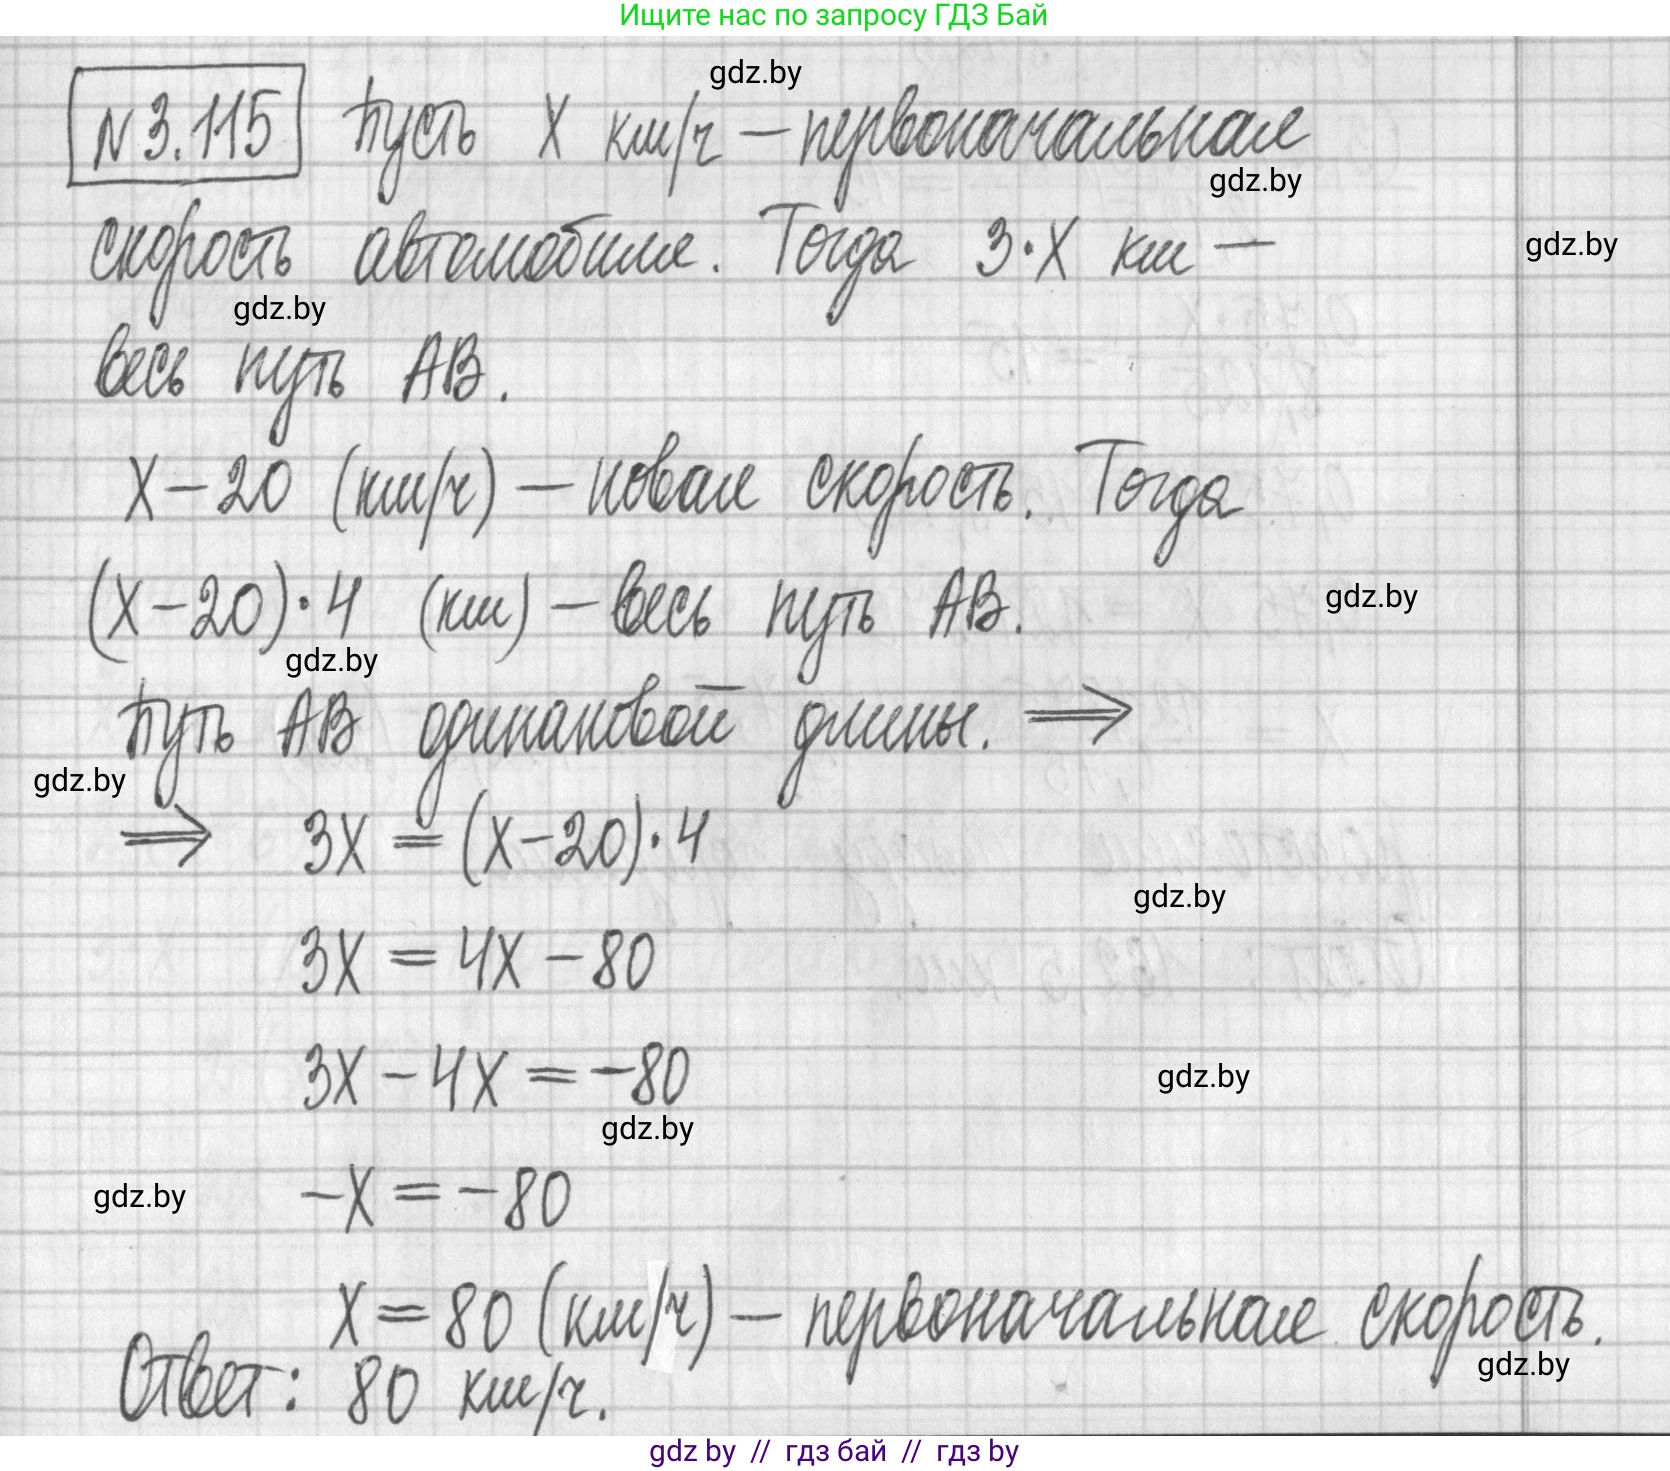 Ищите нас по запросу ГДЗ Бай
gdz.by
N3.115 Пусть X км/ч — первоначальная
gdz.by
скорость автомобиля. Тогда 3·X км —
gdz.by
gdz.by
весь путь AB.
X - 20 (км/ч) — новая скорость. Тогда
(X - 20)·4 (км) — весь путь AB.
gdz.by
gdz.by
Путь AB одинаковой длины. ⟹
gdz.by
⟹ 3X = (X - 20)·4
gdz.by
3X = 4X - 80
3X - 4X = -80
gdz.by
gdz.by
-X = -80
gdz.by
X = 80 (км/ч) — первоначальная скорость.
gdz.by
Ответ: 80 км/ч.
gdz by // гдз бай // гдз by